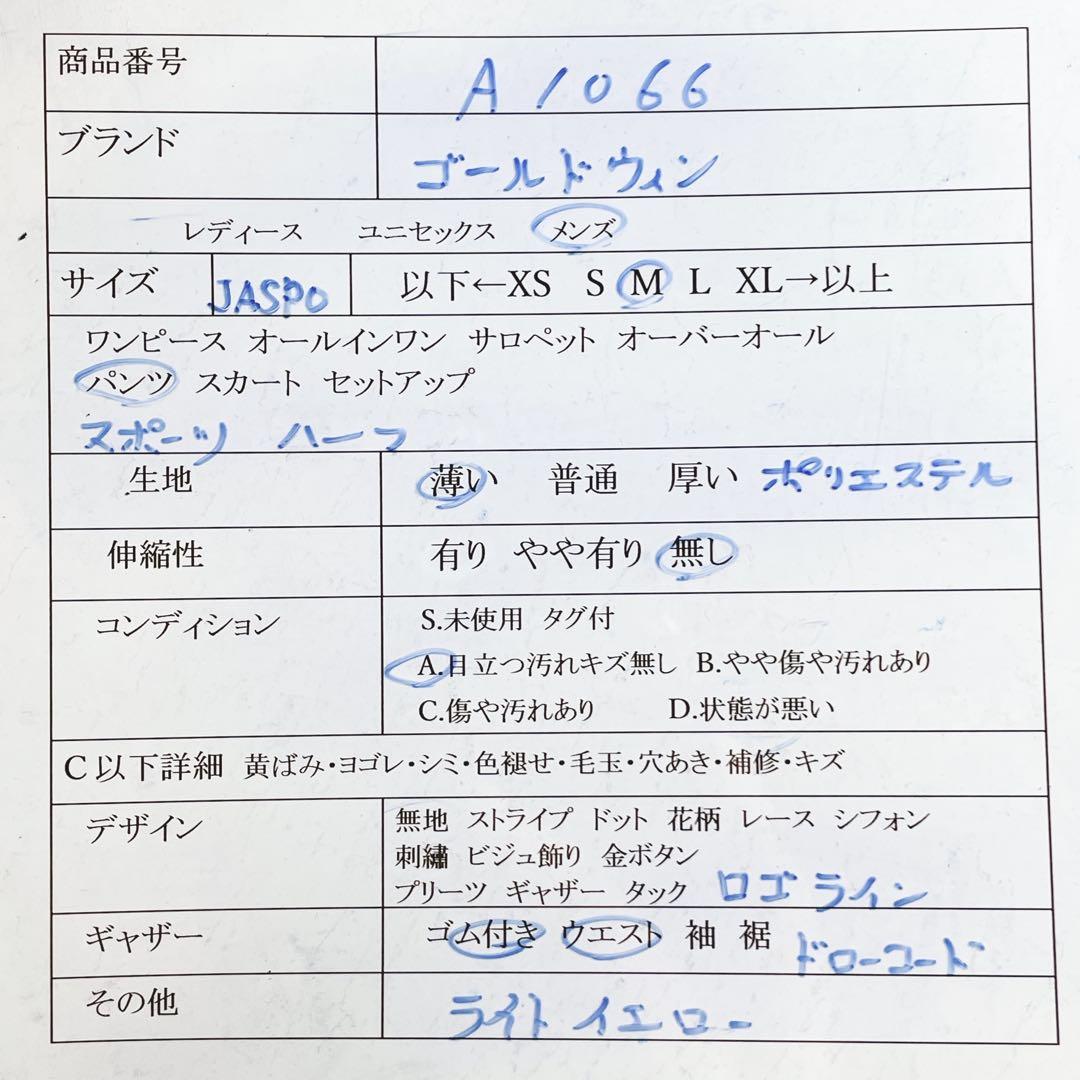 商品番号 A1066
ブランド ゴールドウィン
レディース ユニセックス メンズ
サイズ JASPO 以下←XS S M L XL→以上
ワンピース オールインワン サロペット オーバーオール
パンツ スカート セットアップ
スポーツ ハーフ
生地 薄い 普通 厚い ポリエステル
伸縮性 有り やや有り 無し
コンディション S.未使用 タグ付
A.目立つ汚れキズ無し B.やや傷や汚れあり
C.傷や汚れあり D.状態が悪い
C以下詳細 黄ばみ・ヨゴレ・シミ・色褪せ・毛玉・穴あき・補修・キズ
デザイン 無地 ストライプ ドット 花柄 レース シフォン
刺繡 ビジュ飾り 金ボタン
プリーツ ギャザー タック ロゴ ライン
ギャザー ゴム付き ウエスト 袖 裾 ドローコード
その他 ライトイエロー